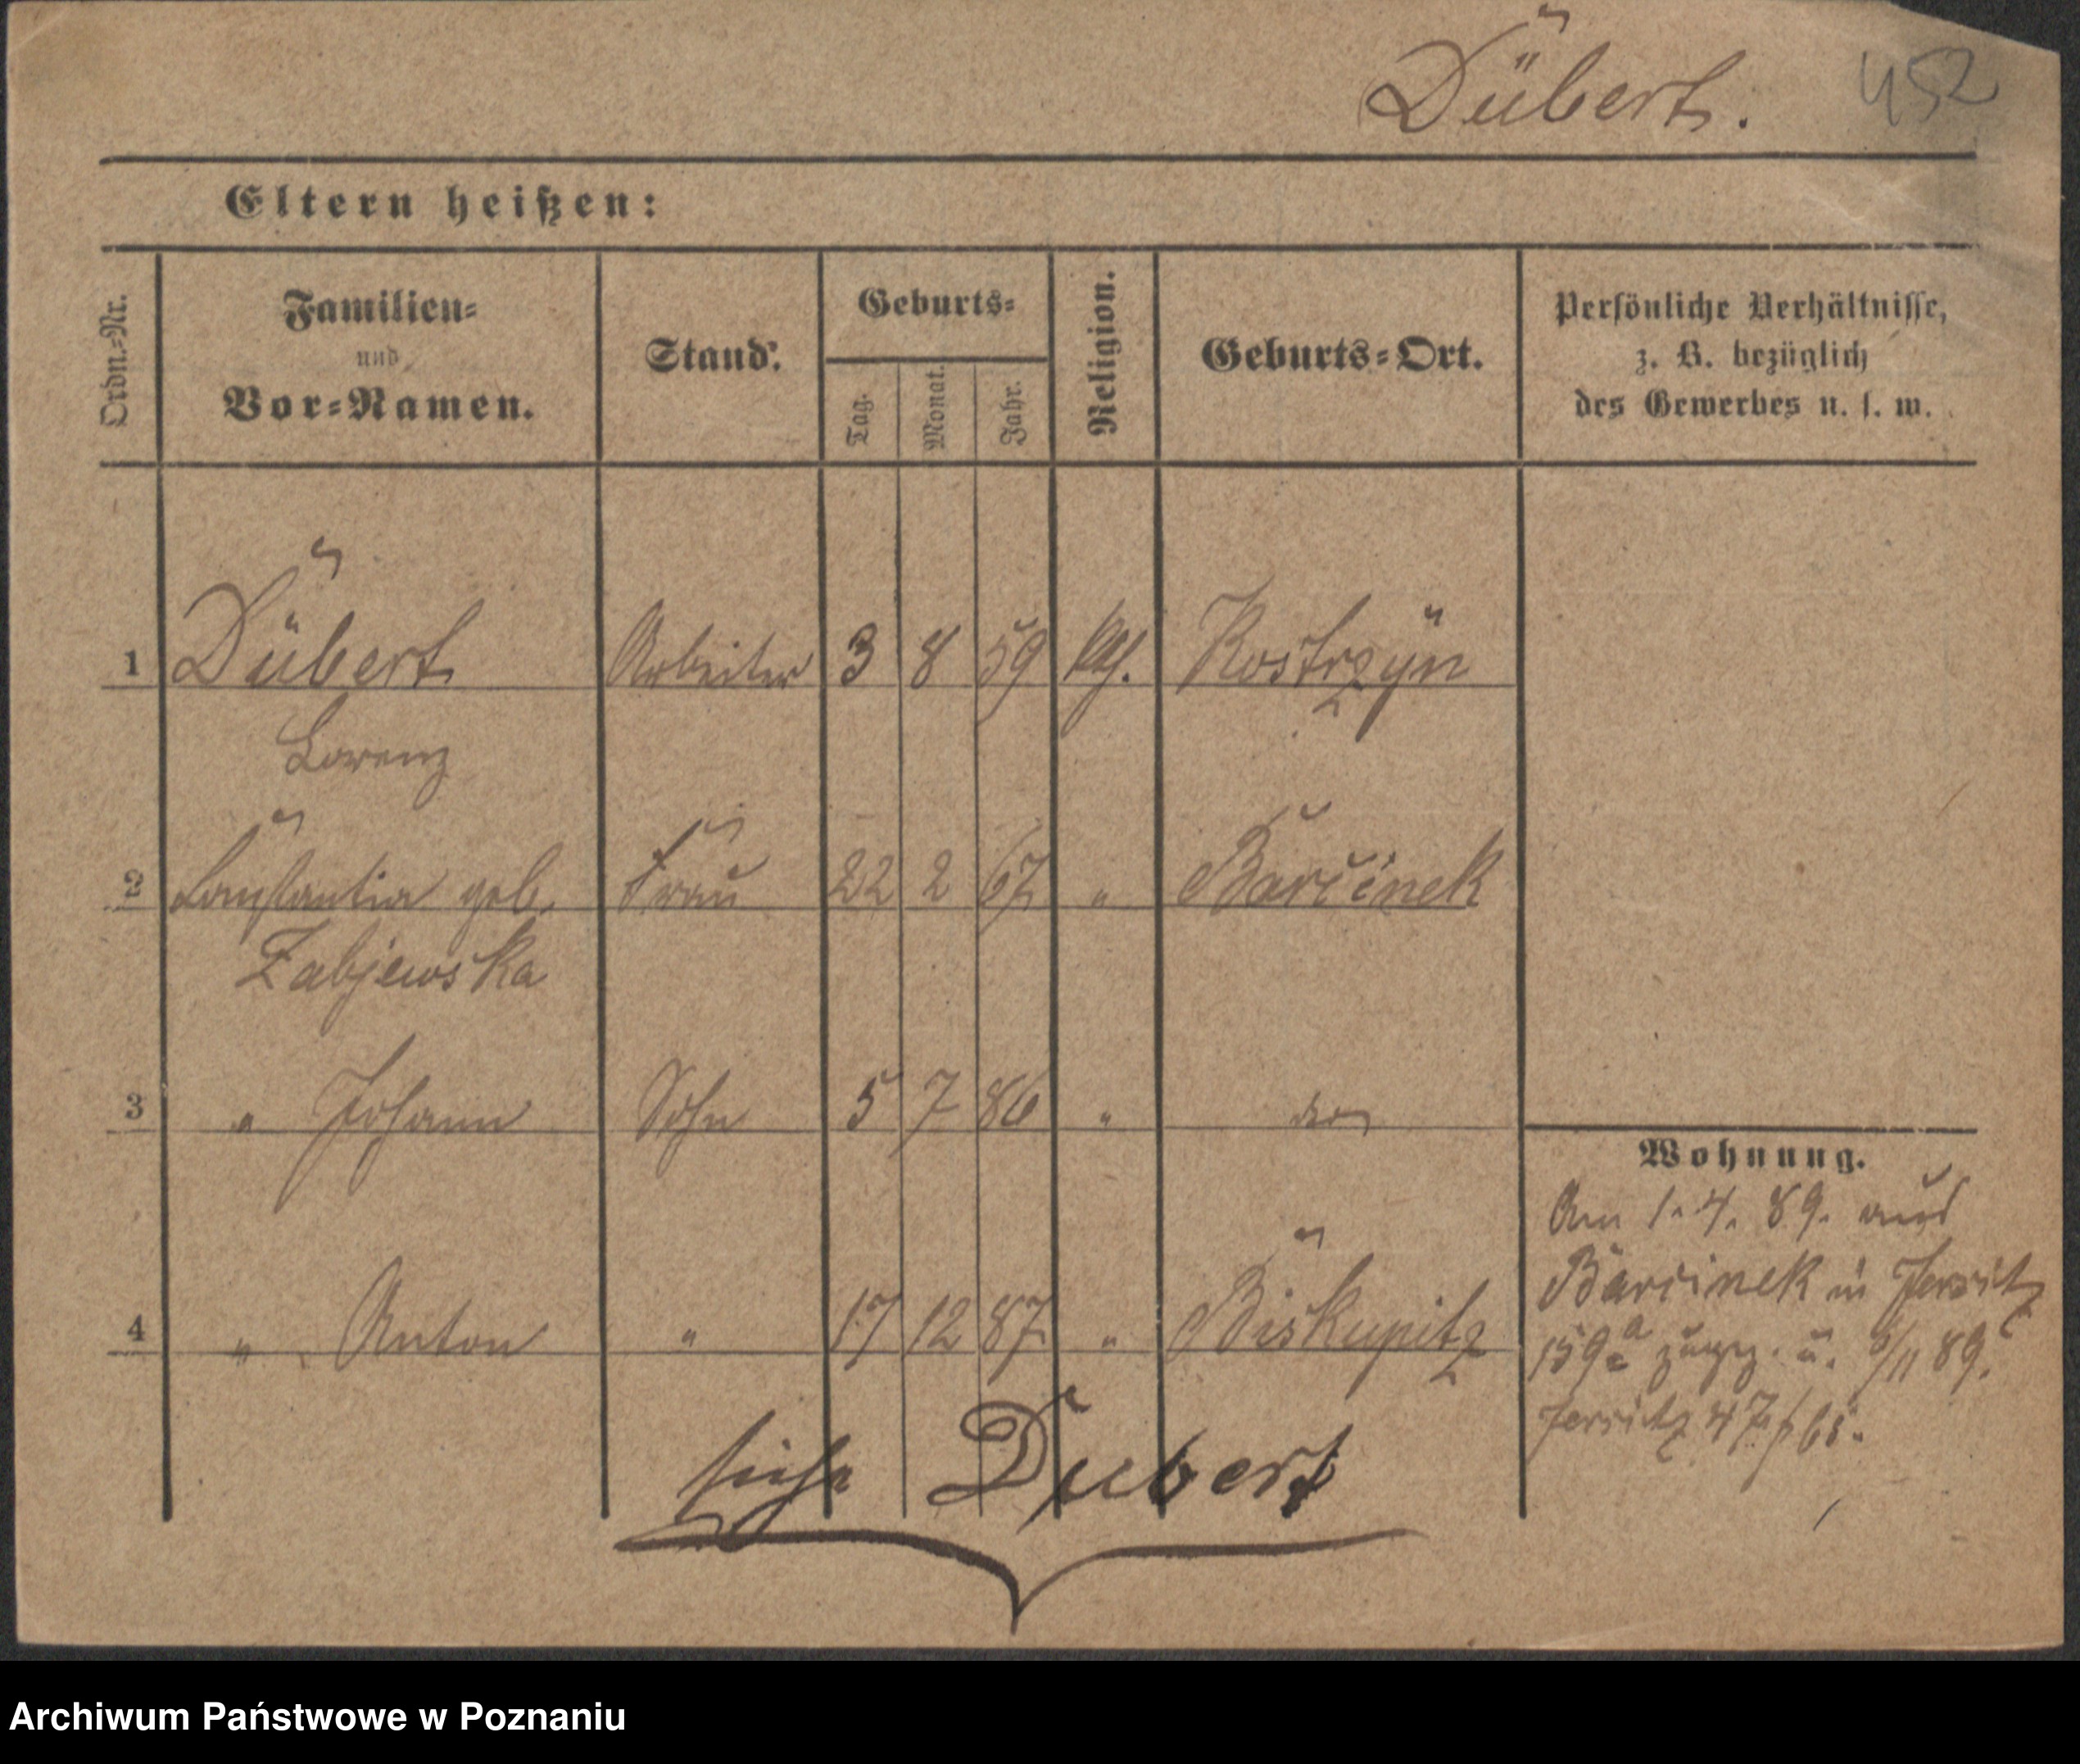 Dübert. 452
Eltern heißen:
Ordn.-Nr.
Familien-
und
Vor-Namen.
Stand.
Geburts-
Tag.
Monat.
Jahr.
Religion.
Geburts-Ort.
Persönliche Verhältnisse,
z. B. bezüglich
des Gewerbes u. s. w.
1 Dübert Arbeiter 3 8 59 kth. Kostrzyn
Lorenz
2 Constantia geb. Frau 22 2 67 " Barcinek
Zabjewska
3 " Johann Sohn 5 7 86 "
4 " Anton " 17 12 87 " Biskupitz
Wohnung.
Am 1. 4. 89. aus
Barcinek in Jersitz
159a zugz. u. /11 89.
Jersitz 47.
siehe Dubert
Archiwum Państwowe w Poznaniu